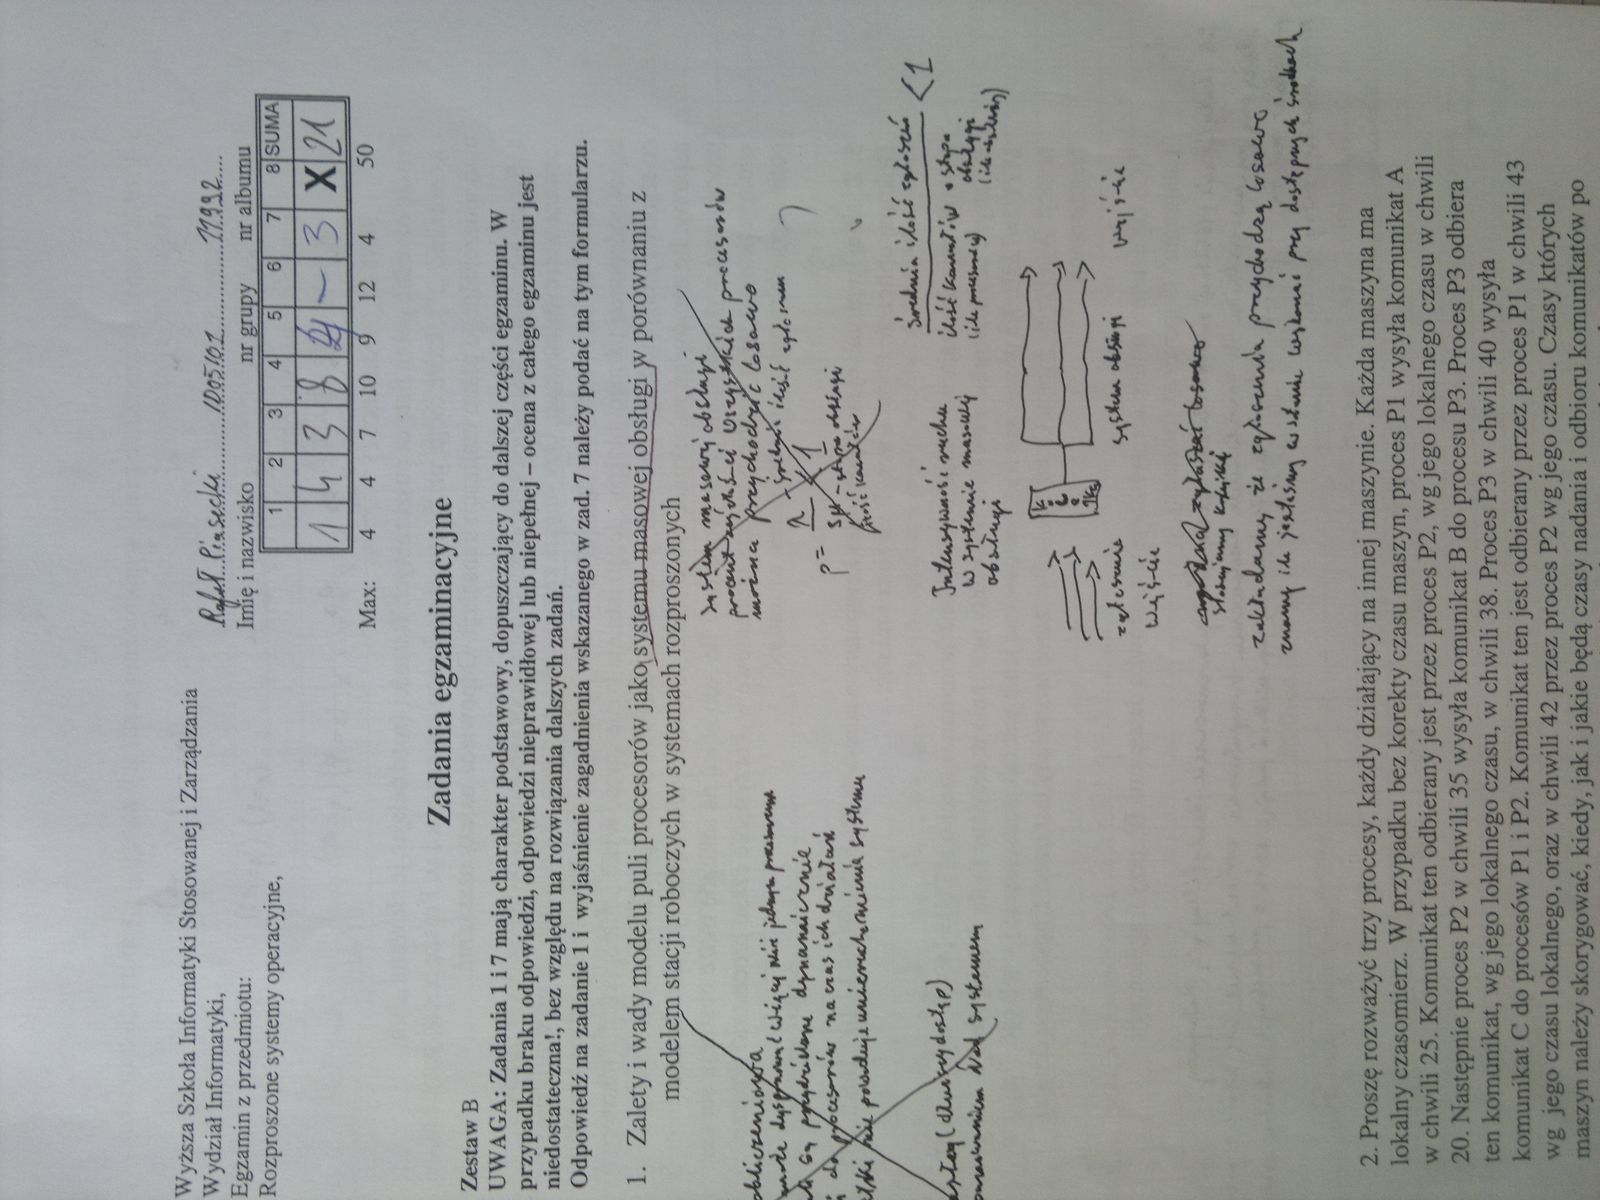 Wyższa Szkoła Informatyki Stosowanej i Zarządzania
Wydział Informatyki,
Egzamin z przedmiotu:
Rozproszone systemy operacyjne,
Rafał Piasecki ID05101 11992
Imię i nazwisko nr grupy nr albumu
1 2 3 4 5 6 7 8 SUMA
1 4 3 8 2 – 3 X 21
Max: 4 4 7 10 9 12 4 50
Zadania egzaminacyjne
Zestaw B
UWAGA: Zadania 1 i 7 mają charakter podstawowy, dopuszczający do dalszej części egzaminu. W
przypadku braku odpowiedzi, odpowiedzi nieprawidłowej lub niepełnej – ocena z całego egzaminu jest
niedostateczna!, bez względu na rozwiązania dalszych zadań.
Odpowiedź na zadanie 1 i wyjaśnienie zagadnienia wskazanego w zad. 7 należy podać na tym formularzu.
1. Zalety i wady modelu puli procesorów jako systemu masowej obsługi w porównaniu z
modelem stacji roboczych w systemach rozproszonych
obliczeniowa
może dysponować więcej niż jednym
są przydzielane dynamicznie
do procesorów na czas ich działań
nie powoduje unieruchomienia systemu
(dłuższy dostęp)
nad systemem
System masowej obsługi
procent wszystkich procesorów
można przychodzić losowo
średnia ilość zgłoszeń
ρ = λ / sμ < 1
stopa obsługi
ilość kanałów
?
Intensywność ruchu
w systemie masowej
obsługi
średnia ilość zgłoszeń < 1
ilość kanałów • stopa
(ile procesorów) obsługi
kolejka
zgłoszenia system obsługi wyjście
wejście
zgłaszać losowo
stosujemy kolejkę
zakładamy że zgłoszenia przychodzą losowo
znamy ile jesteśmy w stanie wykonać przy dostępnych środkach
2. Proszę rozważyć trzy procesy, każdy działający na innej maszynie. Każda maszyna ma
lokalny czasomierz. W przypadku bez korekty czasu maszyn, proces P1 wysyła komunikat A
w chwili 25. Komunikat ten odbierany jest przez proces P2, wg jego lokalnego czasu w chwili
20. Następnie proces P2 w chwili 35 wysyła komunikat B do procesu P3. Proces P3 odbiera
ten komunikat, wg jego lokalnego czasu, w chwili 38. Proces P3 w chwili 40 wysyła
komunikat C do procesów P1 i P2. Komunikat ten jest odbierany przez proces P1 w chwili 43
wg jego czasu lokalnego, oraz w chwili 42 przez proces P2 wg jego czasu. Czasy których
maszyn należy skorygować, kiedy, jak i jakie będą czasy nadania i odbioru komunikatów po